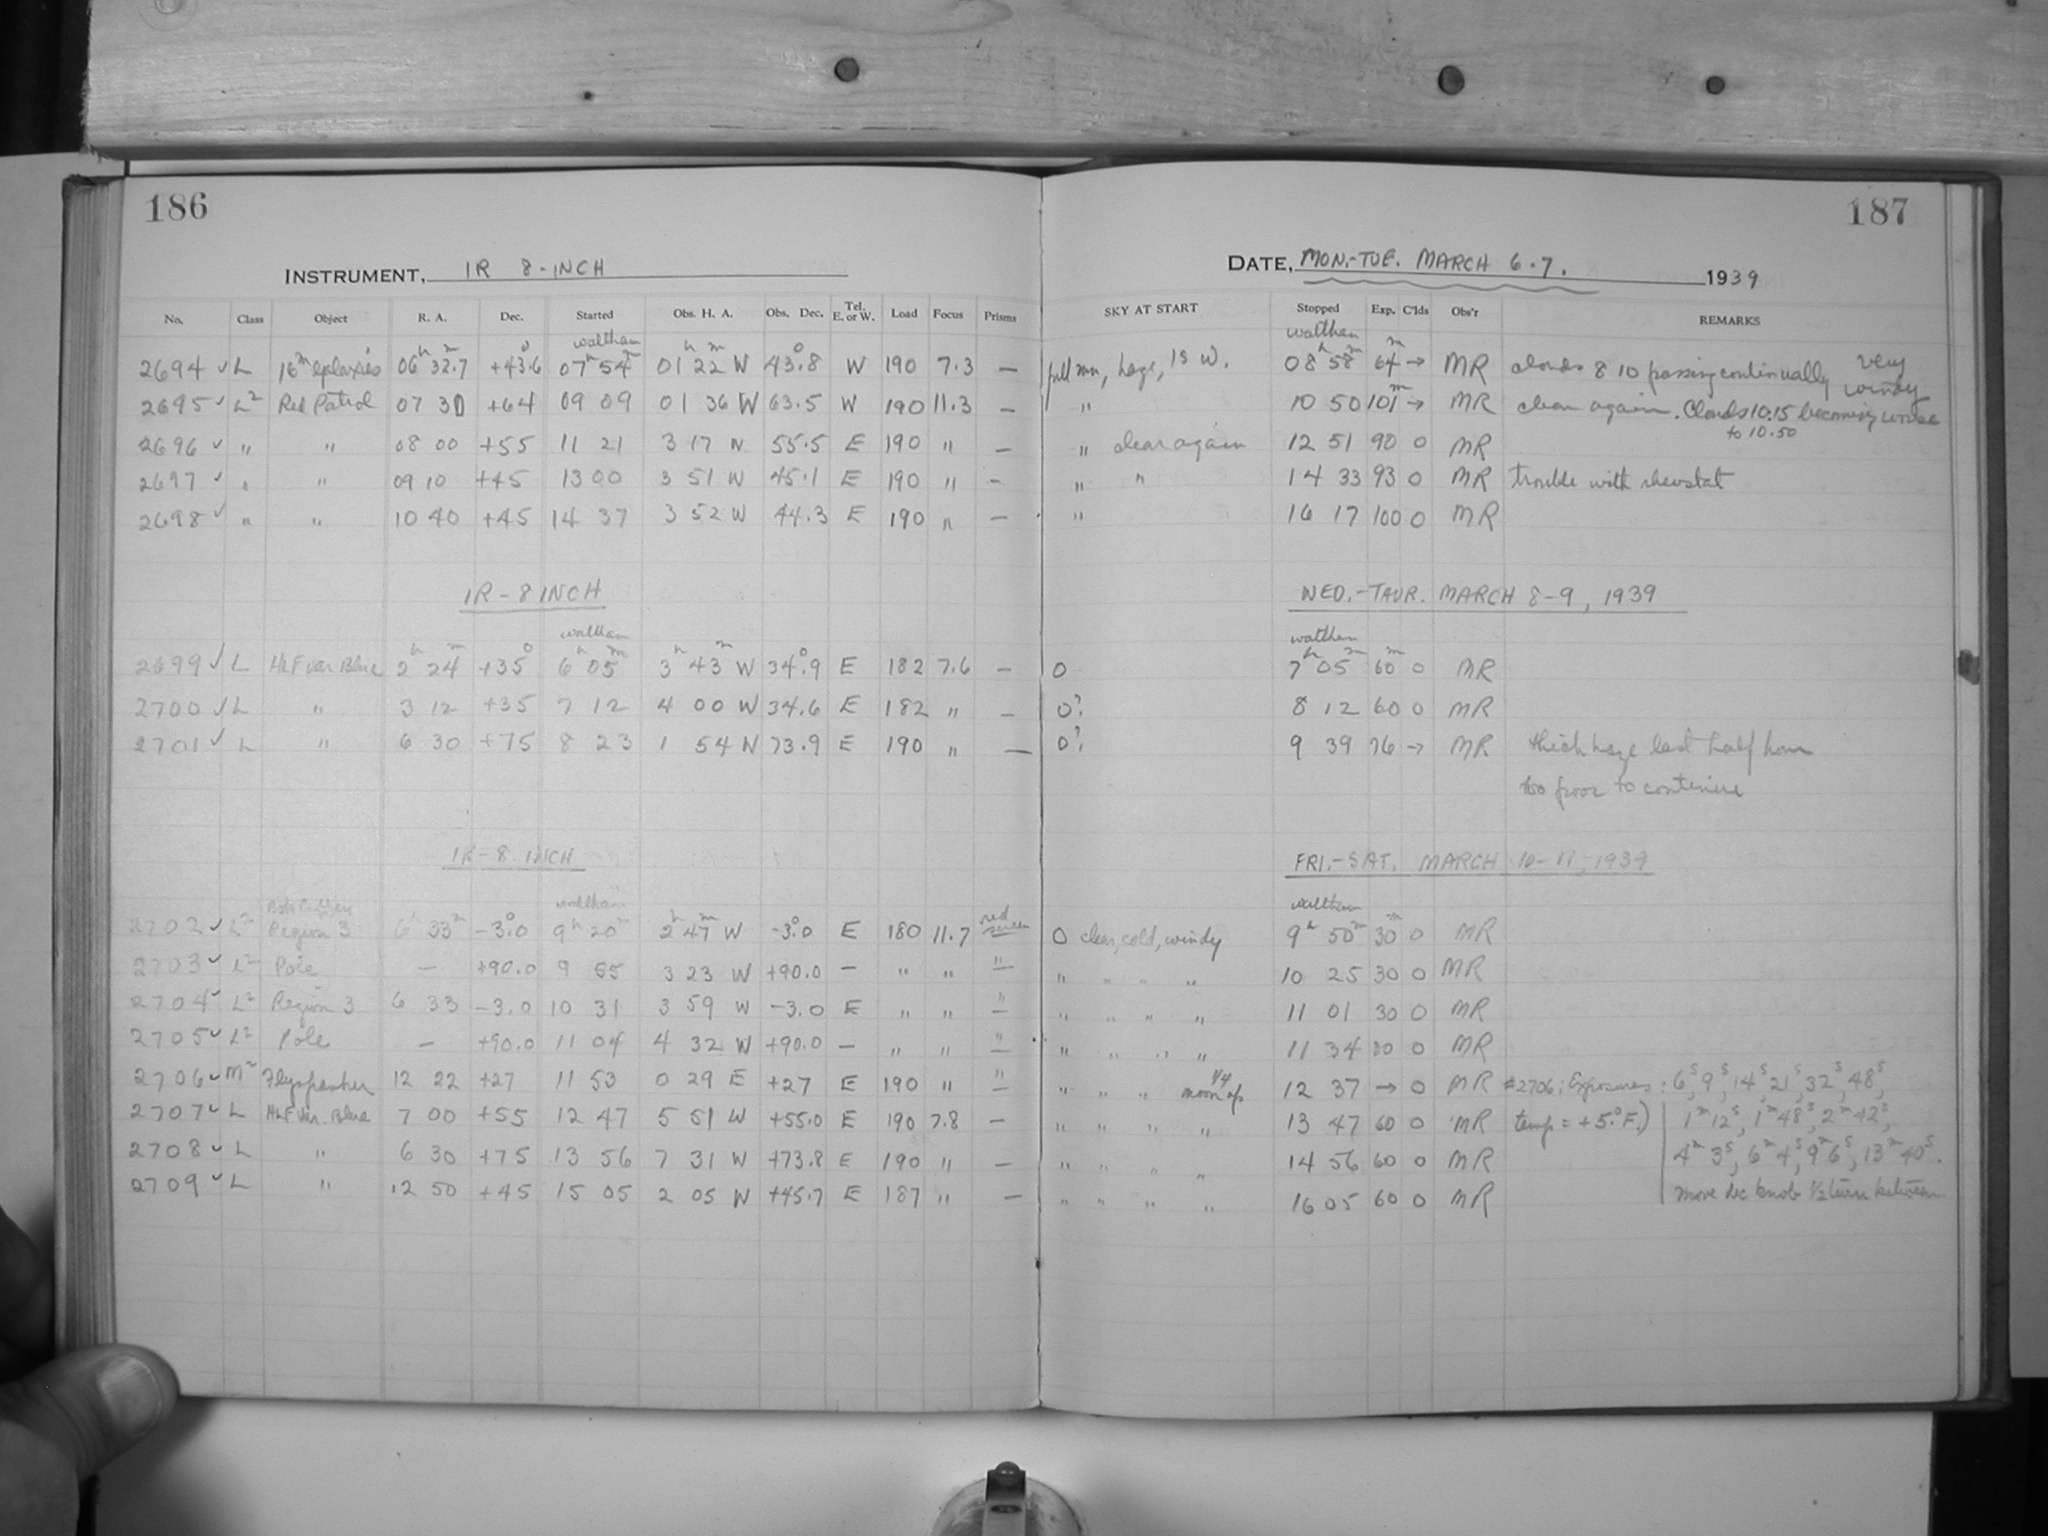 186
187
INSTRUMENT, IR 8-INCH
DATE, MON.-TUE. MARCH 6-7. 1939
No. Class Object R. A. Dec. Started Obs. H. A. Obs. Dec. Tel. E. or W. Load Focus Prisms SKY AT START Stopped Exp. C'lds Obs'r REMARKS
waltham waltham
2694 ✓ L 16m galaxies 06h 32.7m +43.6° 07h 54m 01h 22m W 43.8° W 190 7.3 — full mn, haze, IS W. 08h 58m 64m → MR clouds 8 10 passing continually very windy
2695 ✓ L2 Red Patrol 07 30 +64 09 09 01 36 W 63.5 W 190 11.3 — " 10 50 101m → MR clear again. Clouds 10:15 becoming worse to 10.50
2696 ✓ " " 08 00 +55 11 21 3 17 W 55.5 E 190 " — " clear again 12 51 90 0 MR
2697 ✓ " " 09 10 +45 13 00 3 51 W 45.1 E 190 " — " " 14 33 93 0 MR trouble with rheostat
2698 ✓ " " 10 40 +45 14 37 3 52 W 44.3 E 190 " — " 16 17 100 0 MR
IR-8 INCH WED.-THUR. MARCH 8-9, 1939
waltham waltham
2699 ✓ L HLF var. Blue 2h 24m +35° 6h 05m 3h 43m W 34.9° E 182 7.6 — 0 7h 05m 60m 0 MR
2700 ✓ L " 3 12 +35 7 12 4 00 W 34.6 E 182 " — 0? 8 12 60 0 MR
2701 ✓ L " 6 30 +75 8 23 1 54 W 73.9 E 190 " — 0? 9 39 76 → MR thick haze last half hour
too poor to continue
IR-8 INCH FRI.-SAT. MARCH 10-11, 1939
waltham waltham
2702 ✓ L2 Region 3 6h 33m -3.0° 9h 20m 2h 47m W -3.0° E 180 11.7 red screen 0 clear, cold, windy 9h 50m 30m 0 MR
2703 ✓ L2 Pole — +90.0 9 55 3 23 W +90.0 — " " " " " " " 10 25 30 0 MR
2704 ✓ L2 Region 3 6 33 -3.0 10 31 3 59 W -3.0 E " " " " " " " 11 01 30 0 MR
2705 ✓ L2 Pole — +90.0 11 04 4 32 W +90.0 — " " " " " " " 11 34 30 0 MR
2706 ✓ M2 Flyspanker 12 22 +27 11 53 0 29 E +27 E 190 " " " " " 1/4 moon up 12 37 → 0 MR #2706: Exposures: 6s, 9s, 14s, 21s, 32s, 48s,
2707 ✓ L HLF Var. Blue 7 00 +55 12 47 5 51 W +55.0 E 190 7.8 — " " " " 13 47 60 0 MR temp = +5.°F.) 1m 12s, 1m 48s, 2m 42s,
2708 ✓ L " 6 30 +75 13 56 7 31 W +73.8 E 190 " — " " " " 14 56 60 0 MR 4m 3s, 6m 4s, 9m 6s, 13m 40s.
2709 ✓ L " 12 50 +45 15 05 2 05 W +45.7 E 187 " — " " " " 16 05 60 0 MR move dec knob 1/2 turn between.